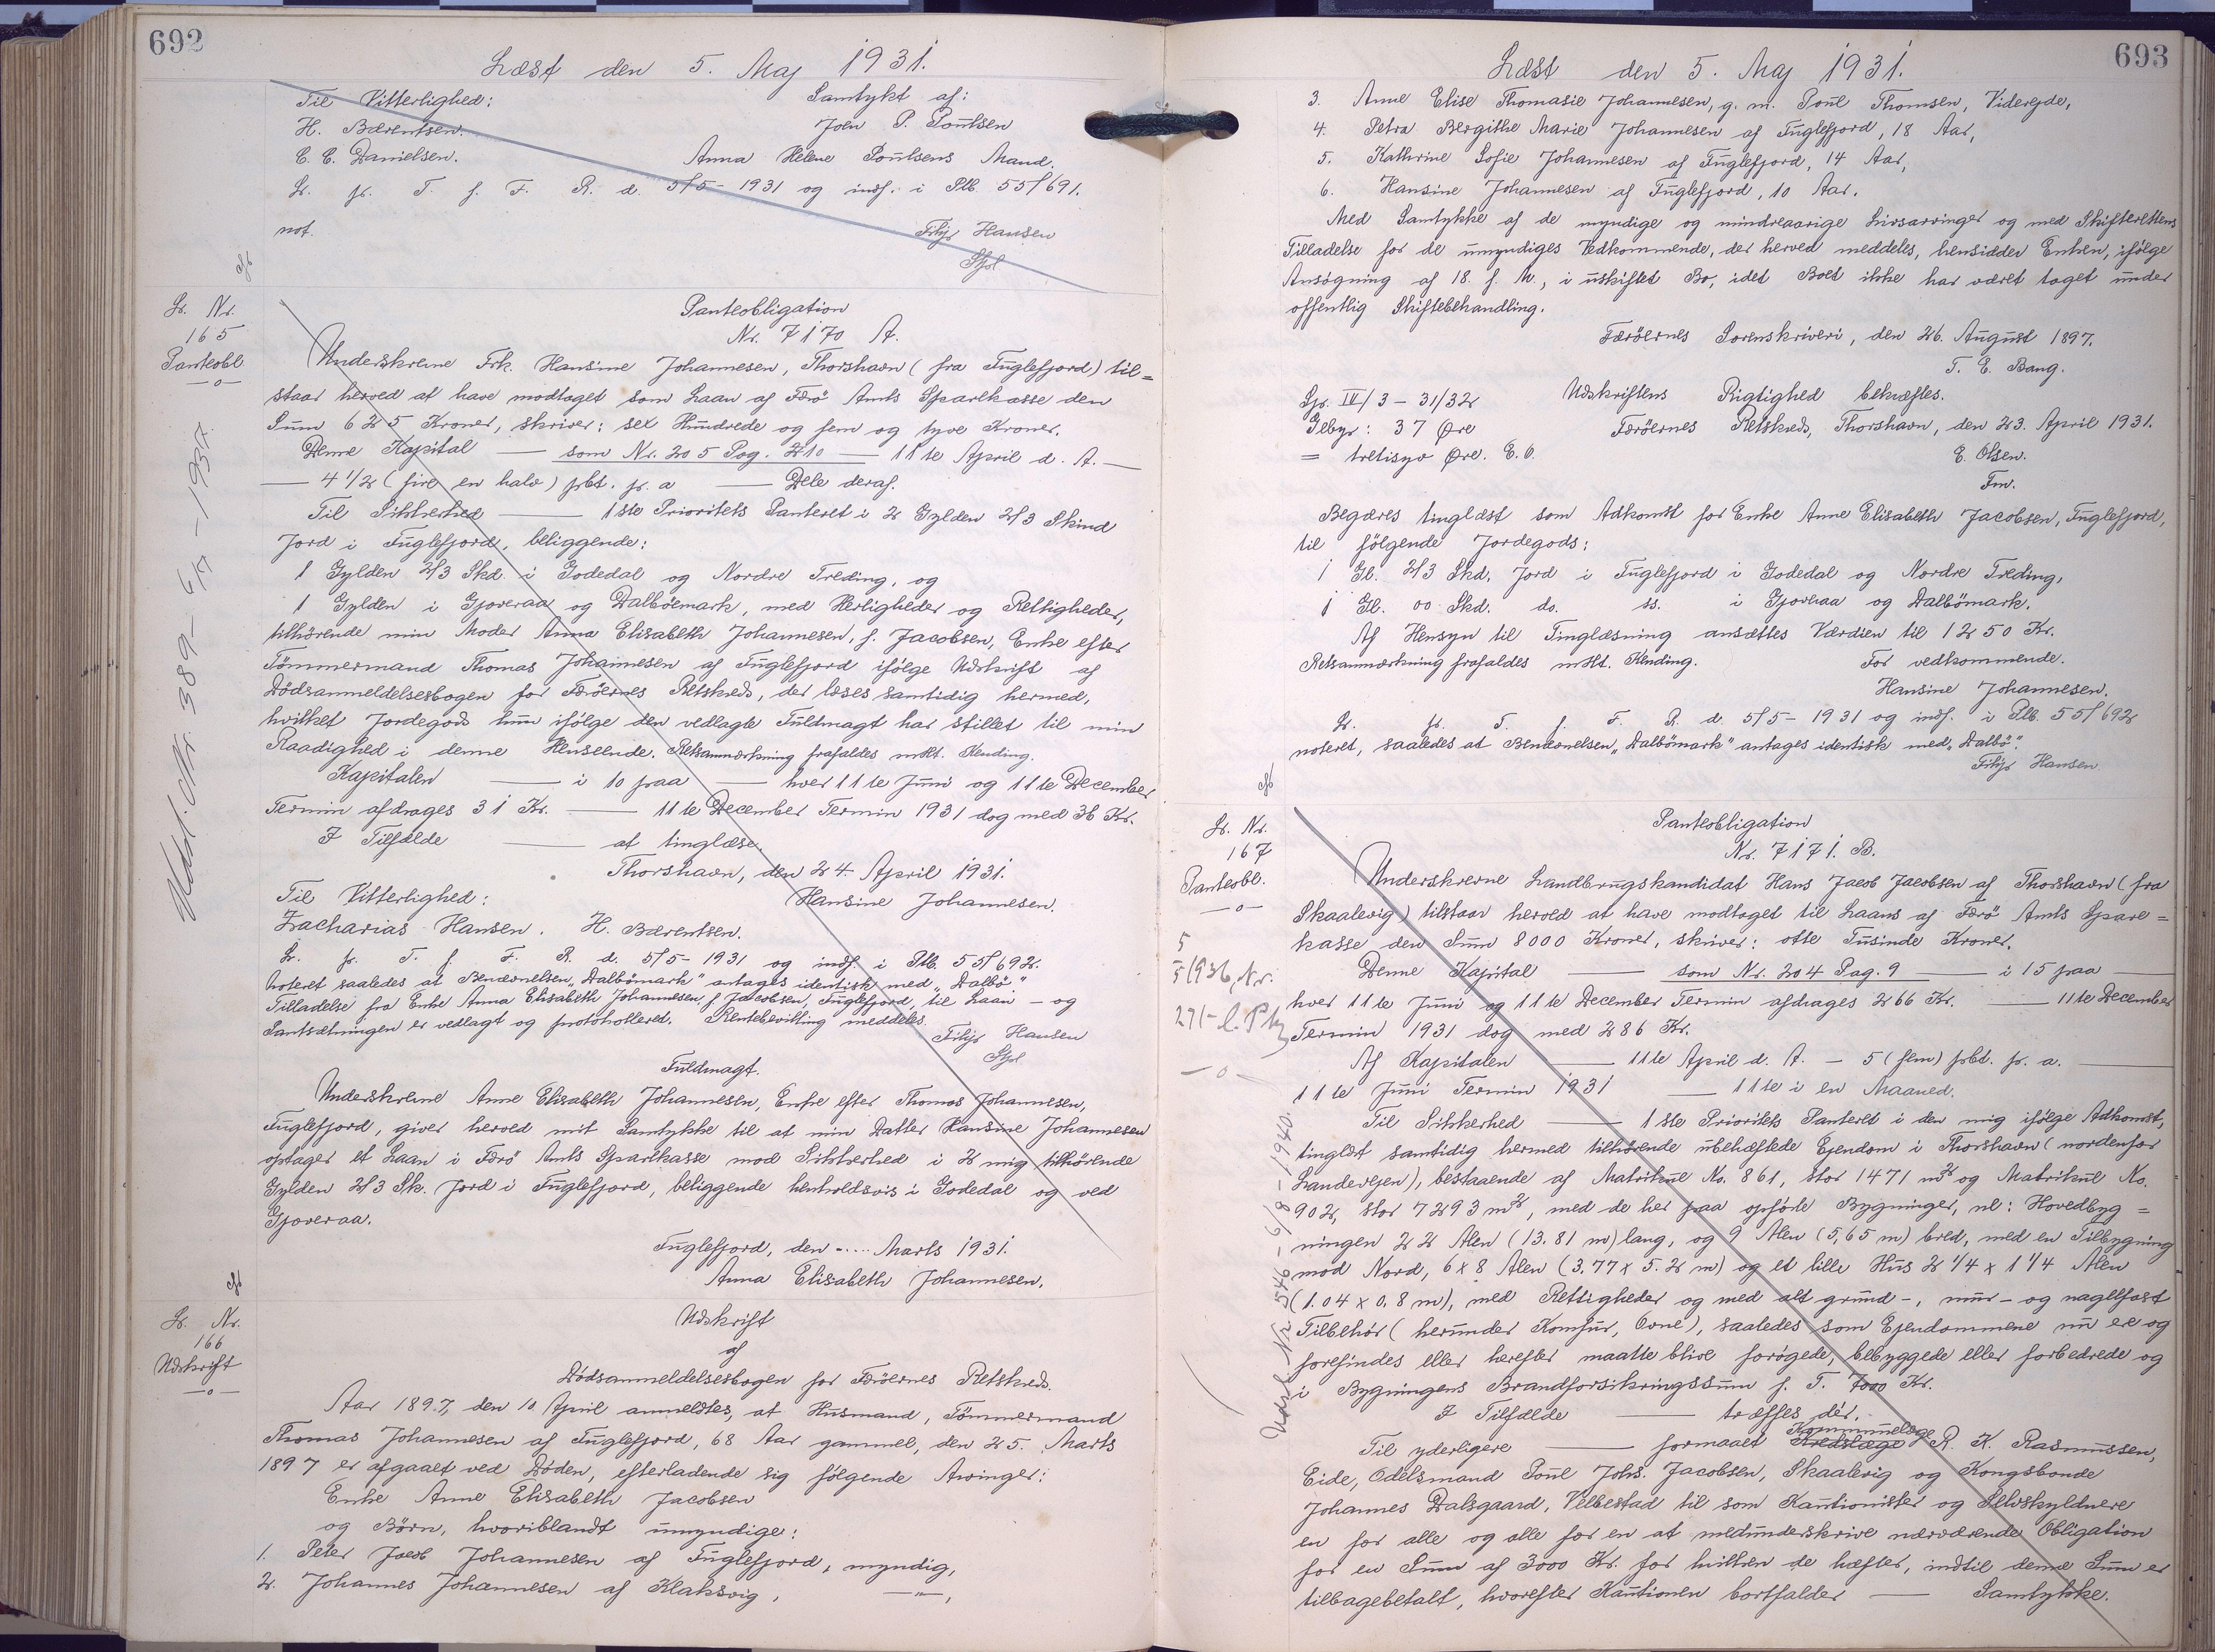 692
Læst den 5. Maj 1931.
Til Vitterlighed: Samtykt af:
H. Bærentsen. Joen P. Poulsen
C. C. Danielsen. Anna Helene Poulsens Mand.
Lr. fr. T. f. F. R. d. 5/5-1931 og indf. i Ptb. 55/691.
not. Filip Hansen
Lr. Nr.
165
Panteobl
—o—
Udsl. Nr. 389-
Panteobligation
Nr. 7170 A.
Underskrevne Frk. Hansine Johannesen, Thorshavn (fra Fuglefjord) til=
staar herved at have modtaget som Laan af Færö Amts Sparekasse den
Sum 625 Kroner, skriver: sex Hundrede og fem og tyve Kroner.
Denne Kapital — som Nr. 205 Pag. 210 — 11te April d. A. —
— 4 1/2 (fire en halv) pbt. p. a — Dele deraf.
Til Sikkerhed — 1ste Prioritets Panteret i 2 Gylden 2/3 Skind
Jord i Fuglefjord, beliggende:
1 Gylden 2/3 Skd. i Godedal og Nordre Treding, og
1 Gylden i Gjoveraa og Dalböemark, med Herligheder og Rettigheder,
tilhörende min Moder Anna Elisabeth Johannesen, f. Jacobsen, Enke efter
Tömmermand Thomas Johannesen af Fuglefjord ifölge Udskrift af
Dödsanmeldelsesbogen for Færöernes Retskreds, der læses samtidig hermed,
hvilket Jordegods hun ifölge den vedlagte Fuldmagt har stillet til min
Raadighed i denne Henseende. Retsanmærkning frafaldes mdt. Kending.
Kapitalen — i 10 paa — hver 11te Juni og 11te December
Termin afdrages 31 Kr. — 11te December Termin 1931 dog med 36 Kr.
I Tilfælde — at tinglæse.
Thorshavn, den 24. April 1931.
Til Vitterlighed: Hansine Johannesen.
Zacharias Hansen. H. Bærentsen.
Lr. fr. T. f. F. R. d. 5/5-1931 og indf. i Ptb. 55/692.
Noteret saaledes at Benævnelsen „Dalbömark" antages identisk med „Dalbö"
Tilladelse fra Enke Anna Elisabeth Johannesen f. Jacobsen, Fuglefjord, til Laan- og
Pantsætningen er vedlagt og protokolleret. Rentebevilling meddeles.
Filip Hansen
Fuldmagt.
Underskrevne Anne Elisabeth Johannesen, Enke efter Thomas Johannesen,
Fuglefjord, giver herved mit Samtykke til at min Datter Hansine Johannesen
optager et Laan i Færö Amts Sparekasse mod Sikkerhed i 2 mig tilhörende
Gylden 2/3 Sk. Jord i Fuglefjord, beliggende henholdsvis i Godedal og ved
Gjoveraa.
Fuglefjord, den ..... Marts 1931.
Anna Elisabeth Johannesen.
Lr. Nr.
166
Udskrift
—o—
Udskrift
af
Dödsanmeldelsesbogen for Færöernes Retskreds.
Aar 1897, den 10. April anmeldtes, at Husmand, Tömmermand
Thomas Johannesen af Fuglefjord, 68 Aar gammel, den 25. Marts
1897 er afgaaet ved Döden, efterladende sig fölgende Arvinger:
Enke Anne Elisabeth Jacobsen
og Börn, hvoriblandt umyndige:
1. Peter Jacob Johannesen af Fuglefjord, myndig,
2. Johannes Johannesen af Klaksvig, —"—,
693
Læst den 5. Maj 1931.
3. Anne Elise Thomasie Johannesen, g. m. Poul Thomsen, Viderejde,
4. Petra Bergithe Marie Johannesen af Fuglefjord, 18 Aar,
5. Kathrine Sofie Johannesen af Fuglefjord, 14 Aar,
6. Hansine Johannesen af Fuglefjord, 10 Aar.
Med Samtykke af de myndige og mindreaarige Livsarvinger og med Skifterettens
Tilladelse for de umyndiges Vedkommende, der herved meddeles, hensidder Enken, ifölge
Ansögning af 18. f. M., i uskiftet Bo, idet Boet ikke har været taget under
offentlig Skiftebehandling.
Færöernes Sorenskriveri, den 26. August 1897.
T. E. Bang.
Gp. IV/3-31/32 Udskriftens Rigtighed bekræftes.
Gebyr: 37 Øre Færöernes Retskreds, Thorshavn, den 23. April 1931.
= tretisyv Øre. E. O. E. Olsen.
Fm.
Begæres tinglæst som Adkomst for Enke Anne Elisabeth Jacobsen, Fuglefjord,
til fölgende Jordegods:
1 Gl. 2/3 Skd. Jord i Fuglefjord i Godedal og Nordre Treding,
1 Gl. 00 Skd. do. ss. i Gjovraa og Dalbömark.
Af Hensyn til Tinglæsning ansættes Værdien til 1250 Kr.
Retsanmærkning frafaldes mdt. Kending. For vedkommende.
Hansine Johannesen.
Lr. fr. T. f. F. R. d. 5/5-1931 og indf. i Ptb. 55/692
noteret, saaledes at Benævnelsen „Dalbömark" antages identisk med „Dalbö".
Filip Hansen
Lr. Nr.
167
Panteobl.
—o—
5
5/1936, Nr.
—o—
Udsl. Nr. 546-6/8-1940.
Panteobligation
Nr. 7171. B.
Underskrevne Landbrugskandidat Hans Jacob Jacobsen af Thorshavn (fra
Skaalevig) tilstaar herved at have modtaget til Laans af Færö Amts Spare=
kasse den Sum 8000 Kroner, skriver: otte Tusinde Kroner.
Denne Kapital — som Nr. 204 Pag. 9 — i 15 paa —
hver 11te Juni og 11te December Termin afdrages 266 Kr. — 11te December
Termin 1931 dog med 286 Kr.
Af Kapitalen — 11te April d. A. — 5 (fem) pbt. p. a. —
11te Juni Termin 1931 — 11te i en Maaned.
Til Sikkerhed — 1ste Prioritets Panteret i den mig ifölge Adkomst,
tinglæst samtidig hermed tilhörende ubehæftede Ejendom i Thorshavn (nordenfor
Landevejen), bestaaende af Matrikul No. 861, stor 1471 m² og Matrikul No.
902, stor 7293 m², med de her paa opförte Bygninger, nl: Hovedbyg=
ningen 22 Alen (13.81 m) lang, og 9 Alen (5,65 m) bred, med en Tilbygning
mod Nord, 6 x 8 Alen (3.77 x 5.2 m) og et lille Hus 2 1/4 x 1 1/4 Alen
(1.04 x 0.8 m), med Rettigheder og med alt grund-, mur- og naglefast
Tilbehör (herunder Komfur, Ovne), saaledes som Ejendommene nu ere og
forefindes eller herefter maatte blive forögede, bebyggede eller forbedrede og
i Bygningens Brandforsikringssum f. T. 7000 Kr.
I Tilfælde — træffes dér.
Til yderligere — formaaet Kredslæge Kommunelæge R. K. Rasmussen,
Eide, Odelsmand Poul Johs. Jacobsen, Skaalevig og Kongsbonde
Johannes Dalsgaard, Velbestad til som Kautionister og Selvskyldnere
en for alle og alle for en at medunderskrive nærværende Obligation
for en Sum af 3000 Kr. for hvilken de hæfter, indtil denne Sum er
tilbagebetalt, hvorefter Kautionen bortfalder — Samtykke.